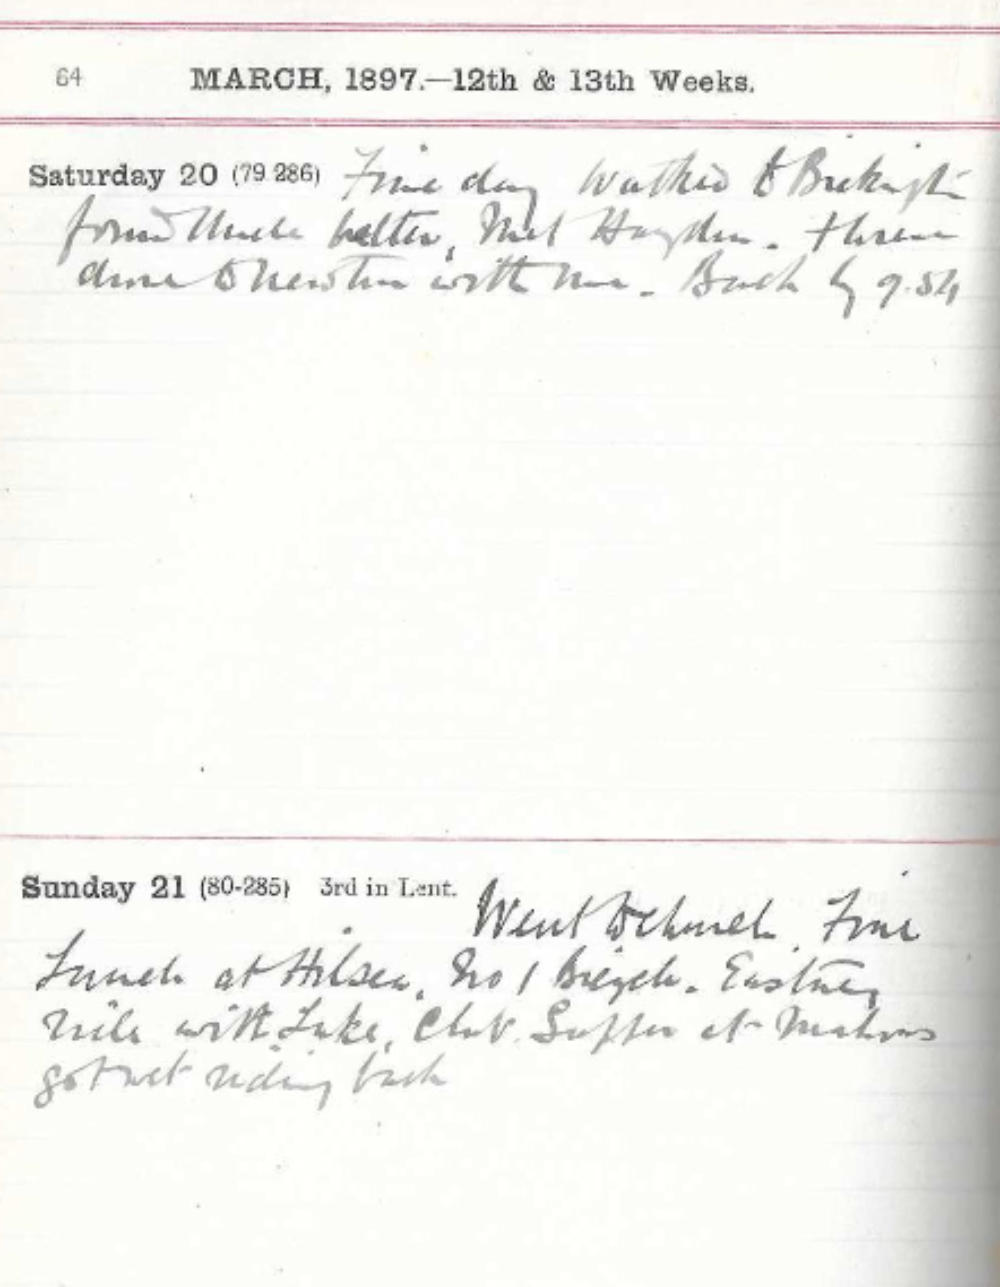 64 MARCH, 1897.—12th & 13th Weeks.
Saturday 20 (79-286) Fine day walked to Bickington
found Uncle better, Met Hayden.
drove to Newton with me. Back by 9.54
Sunday 21 (80-285) 3rd in Lent. Went to church. Fine
Lunch at Hilsea, No 1 Bicycle. Eastney
ride with Luke, Club. Supper at
got wet riding back